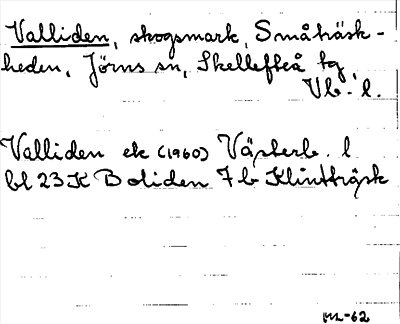 Valliden, skogsmark, Småträsk-
heden, Jörns sn, Skellefteå tg,
Vb. l.
Valliden ek (1960) Västerb. l
bl 23 K Boliden 7 b Klintträsk
ML-62